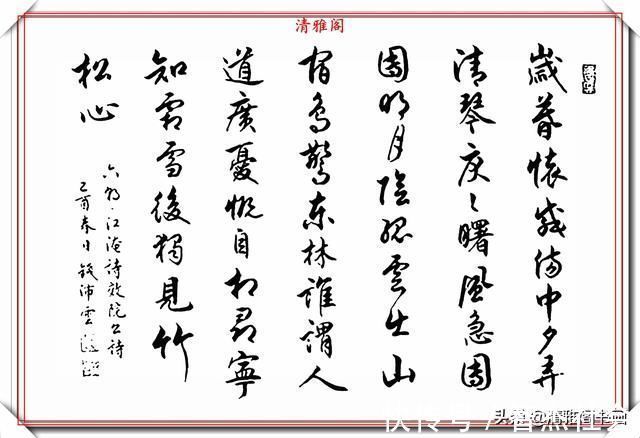 清雅阁
歲暮懷感傷中夕弄
清琴戾〻曙風急團
團明月陰孤雲出山
宿鳥驚東林誰謂人
道廣憂慨自相尋寧
知霜雪後獨見竹
松心
六朝·江淹詩效院公詩
乙酉春日錢沛雲
头条@清雅
快传号/